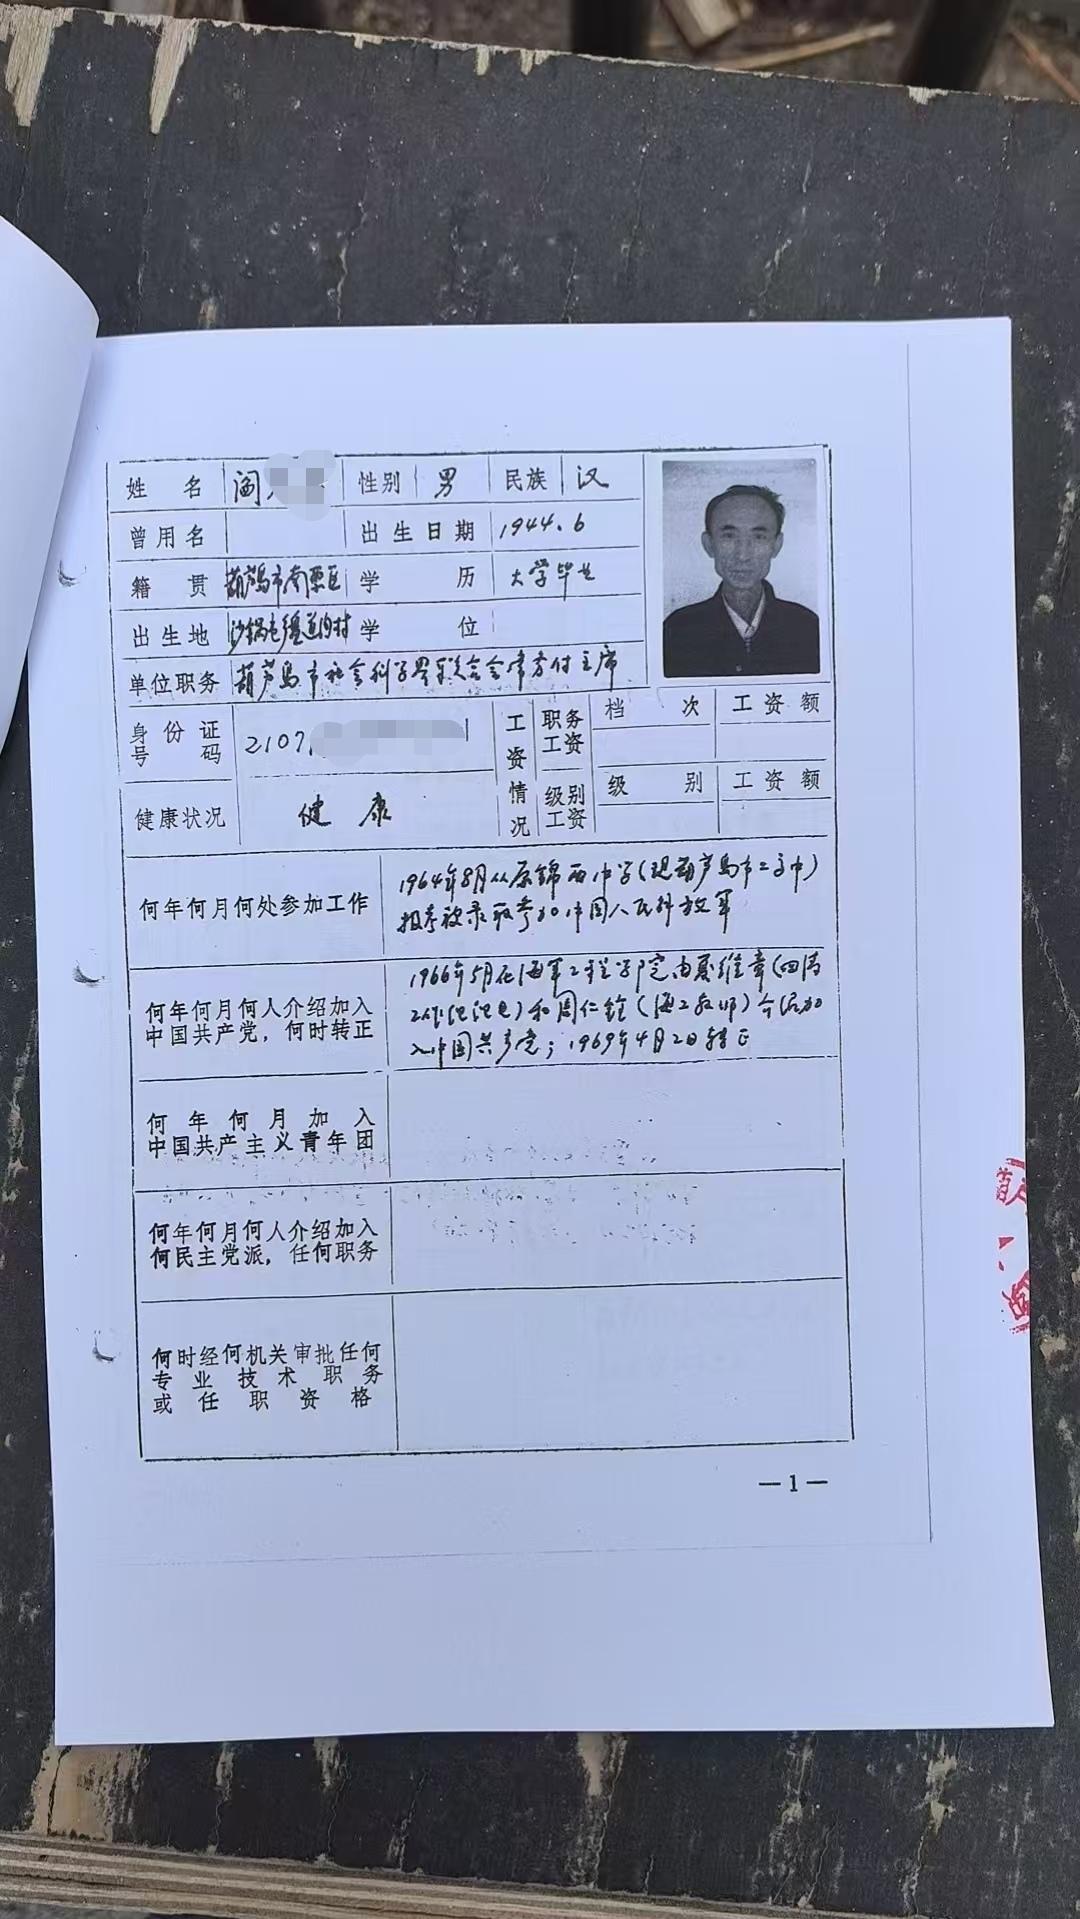 姓名 阎 性别 男 民族 汉
曾用名 出生日期 1944.6
籍贯 葫芦岛市南票区 学历 大学毕业
出生地 沙锅屯缠道沟村 学位
单位职务 葫芦岛市社会科学界联合会常务付主席
身份证号码 2107 工资情况 职务工资 档次 工资额
级别工资 级别 工资额
健康状况 健康
何年何月何处参加工作 1964年8月从原锦西中学(现葫芦岛市二高中)
报考被录取参加中国人民解放军
何年何月何人介绍加入
中国共产党,何时转正
1966年5月在海军工程学院由夏维章(四清
工作)和周仁铨(海工教师)介绍加
入中国共产党;1969年4月2日转正
何年何月加入
中国共产主义青年团
何年何月何人介绍加入
何民主党派,任何职务
何时经何机关审批任何
专业技术职务
或任职资格
—1—